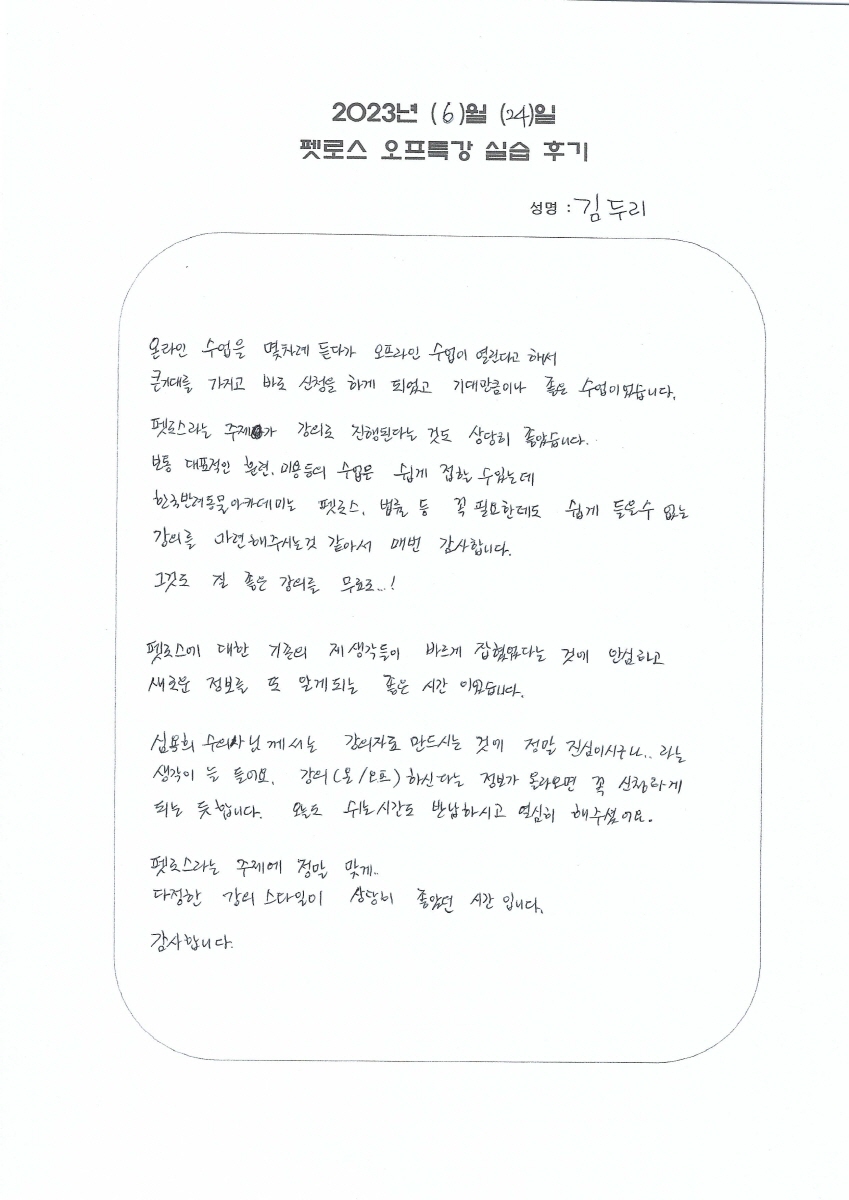 2023년 (6)월 (24)일
펫로스 오프특강 실습 후기
성명 : 김두리
온라인 수업을 몇차례 듣다가 오프라인 수업이 열린다고 해서
큰기대를 가지고 바로 신청을 하게 되었고 기대만큼이나 좋은 수업이었습니다.
펫로스라는 주제가 강의로 진행된다는 것도 상당히 좋았습니다.
보통 대표적인 훈련, 미용등의 수업은 쉽게 접할 수있는데
한국반려동물아카데미는 펫로스, 법률 등 꼭 필요한데도 쉽게 들을수 없는
강의를 마련해주시는것 같아서 매번 감사합니다.
그것도 질 좋은 강의를 무료로...!
펫로스에 대한 기존의 제생각들이 바르게 잡혔었다는 것에 안심하고
새로운 정보를 또 알게되는 좋은 시간 이었습니다.
심용희 수의사님께서는 강의자료 만드시는 것에 정말 진심이시구나.. 라는
생각이 늘 들어요. 강의(온/오프) 하신다는 정보가 올라오면 꼭 신청하게
되는 듯합니다. 오늘도 쉬는시간도 반납하시고 열심히 해주셨어요.
펫로스라는 주제에 정말 맞게..
다정한 강의 스타일이 상당히 좋았던 시간 입니다.
감사합니다.